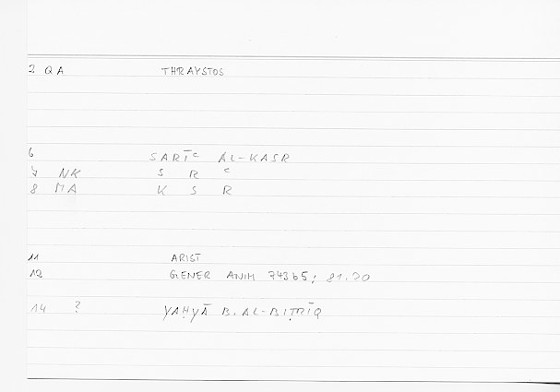 2 QA THRAYSTOS
6 SARĪʿ AL-KASR
7 NK S R ʿ
8 MA K S R
11 ARIST
12 GENER ANIM 743b5; 81.20
14 ? YAḤYĀ B. AL-BIṬRĪQ